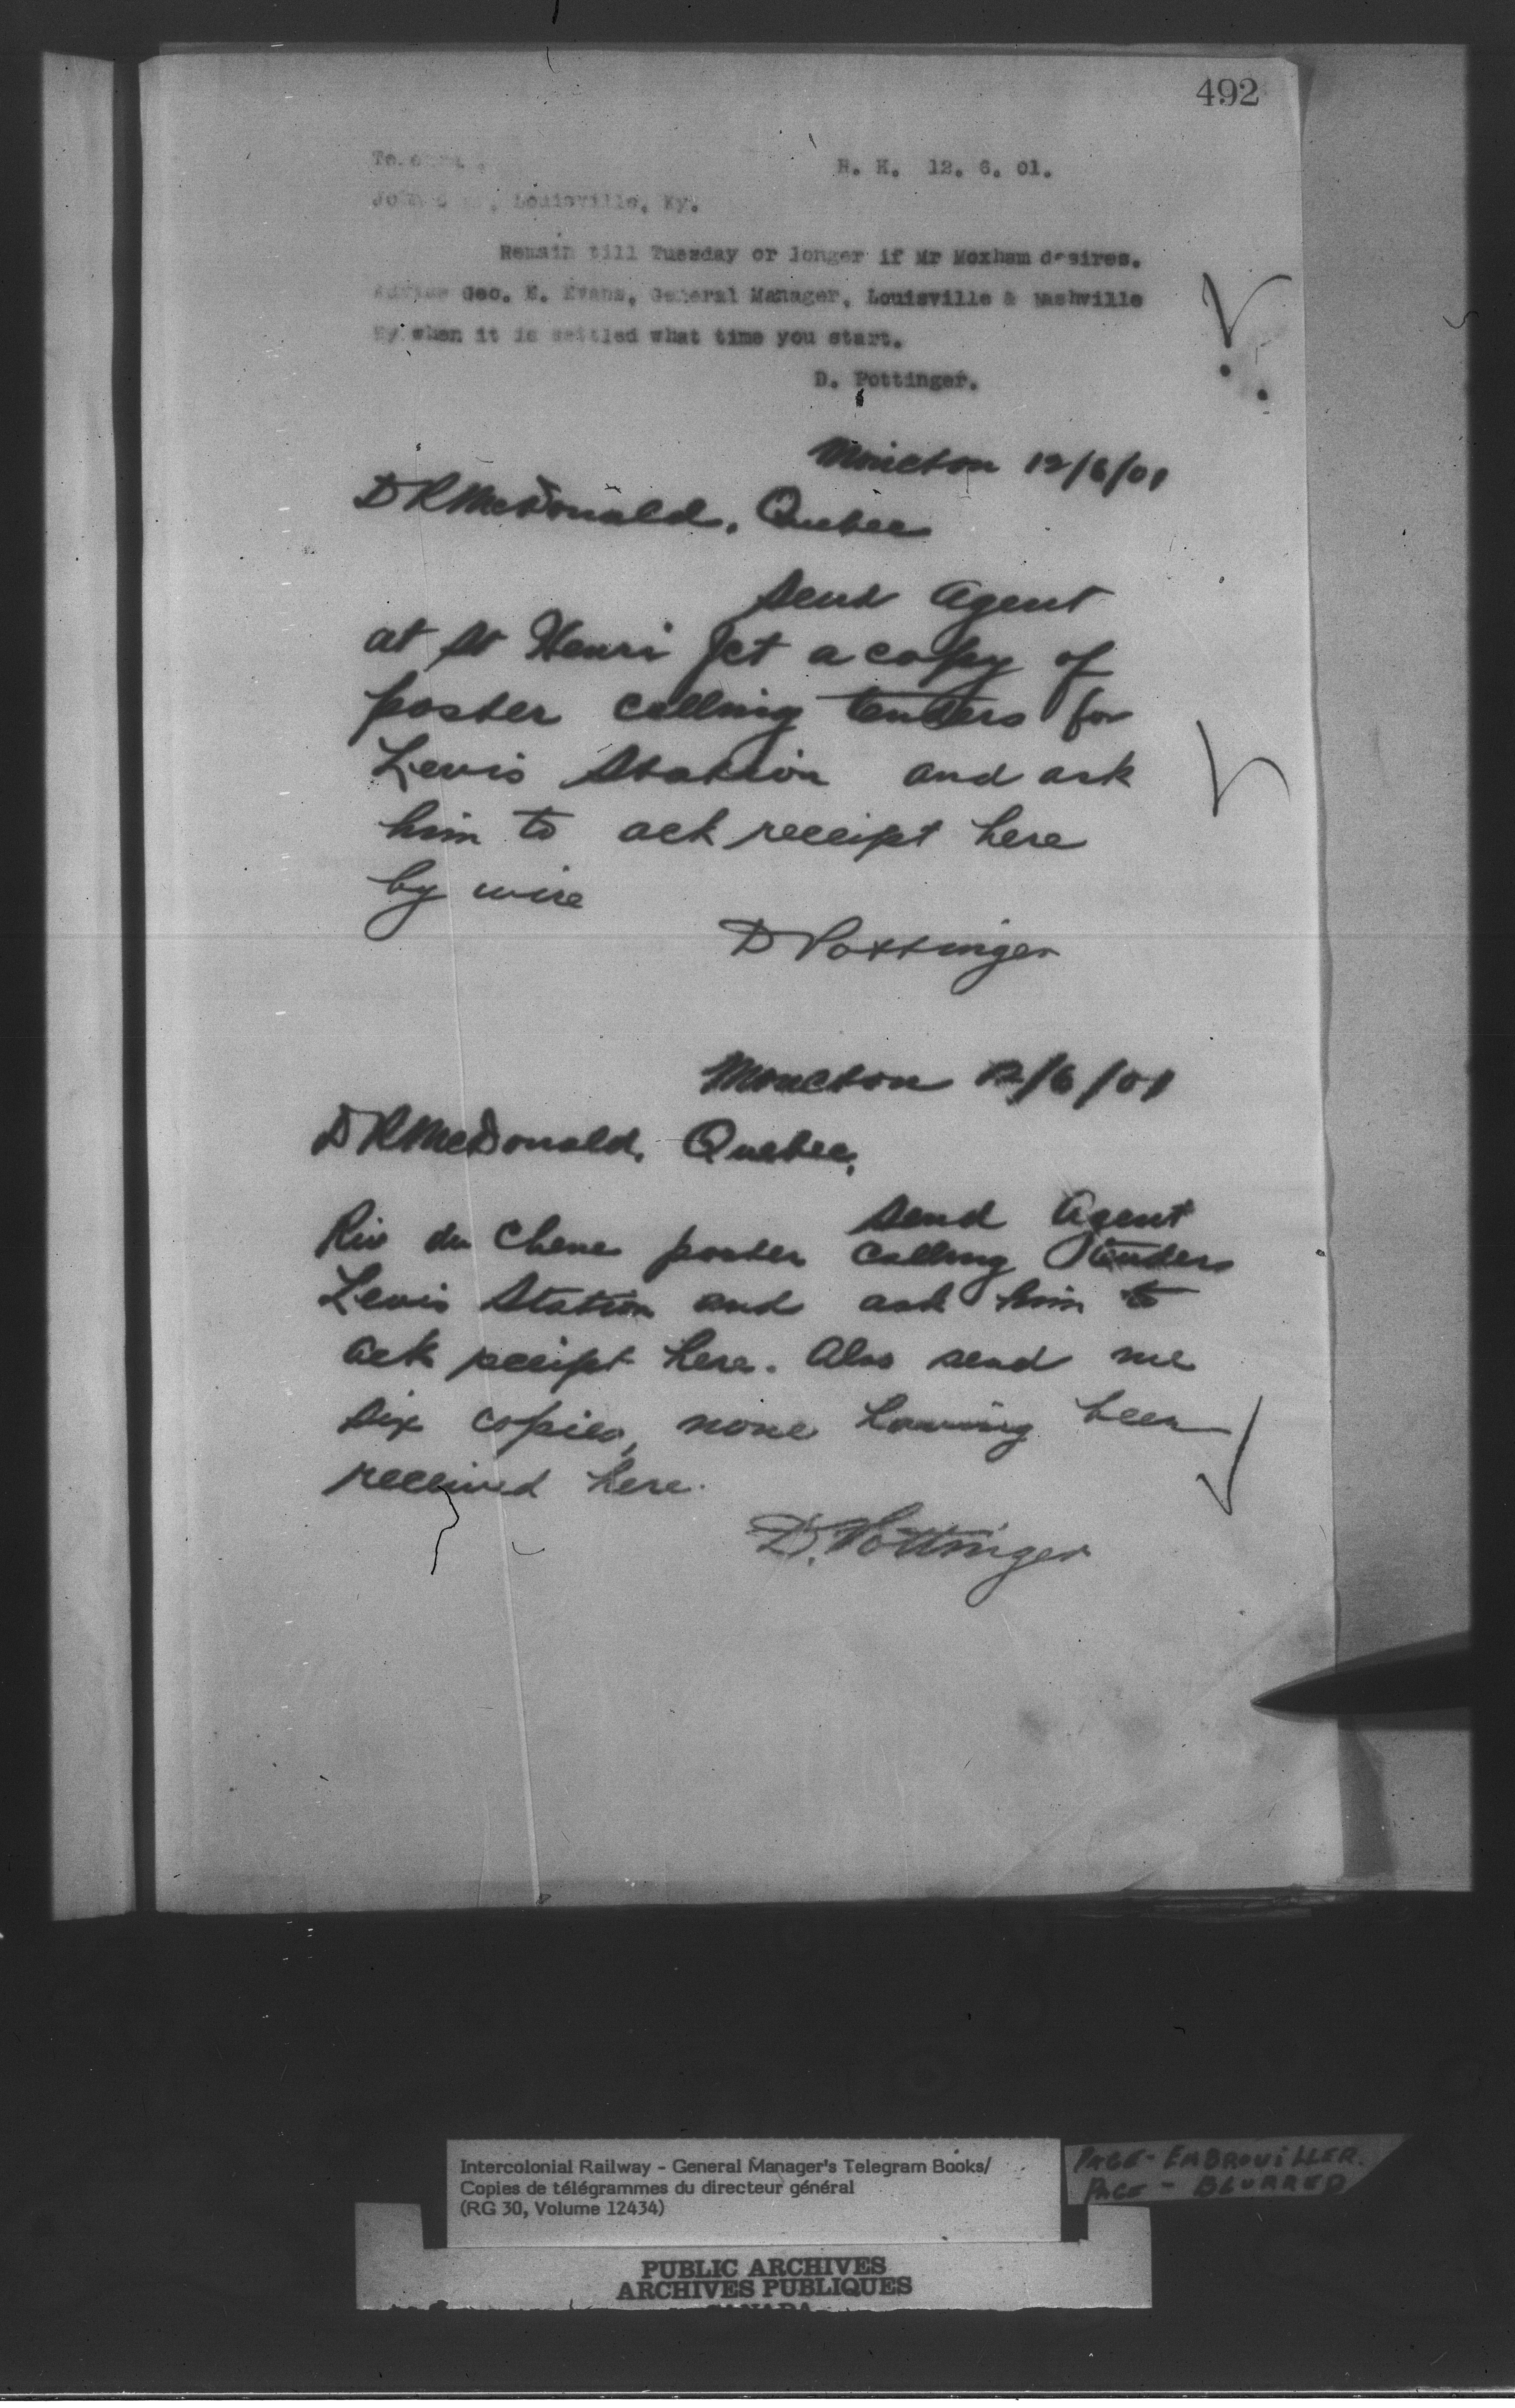 492
H. H. 12. 6. 01.
Louisville, Ky.
Remain till Tuesday or longer if Mr Moxham desires.
Advise Geo. E. Evans, General Manager, Louisville & Nashville
Ry when it is settled what time you start.
D. Pottinger.
Moncton 12/6/01
D R McDonald, Quebec
Send Agent
at St Henri Jct a copy of
poster calling tenders for
Levis Station and ask
him to ack receipt here
by wire
D Pottinger
Moncton 12/6/01
D R McDonald, Quebec,
Send Agent
Riv du Chene poster calling tenders
Levis Station and ask him to
ack receipt here. Also send me
six copies, none having been
received here.
D. Pottinger
Intercolonial Railway - General Manager's Telegram Books/
Copies de télégrammes du directeur général
(RG 30, Volume 12434)
PAGE - EMBROUILLER.
PAGE - BLURRED
PUBLIC ARCHIVES
ARCHIVES PUBLIQUES
CANADA